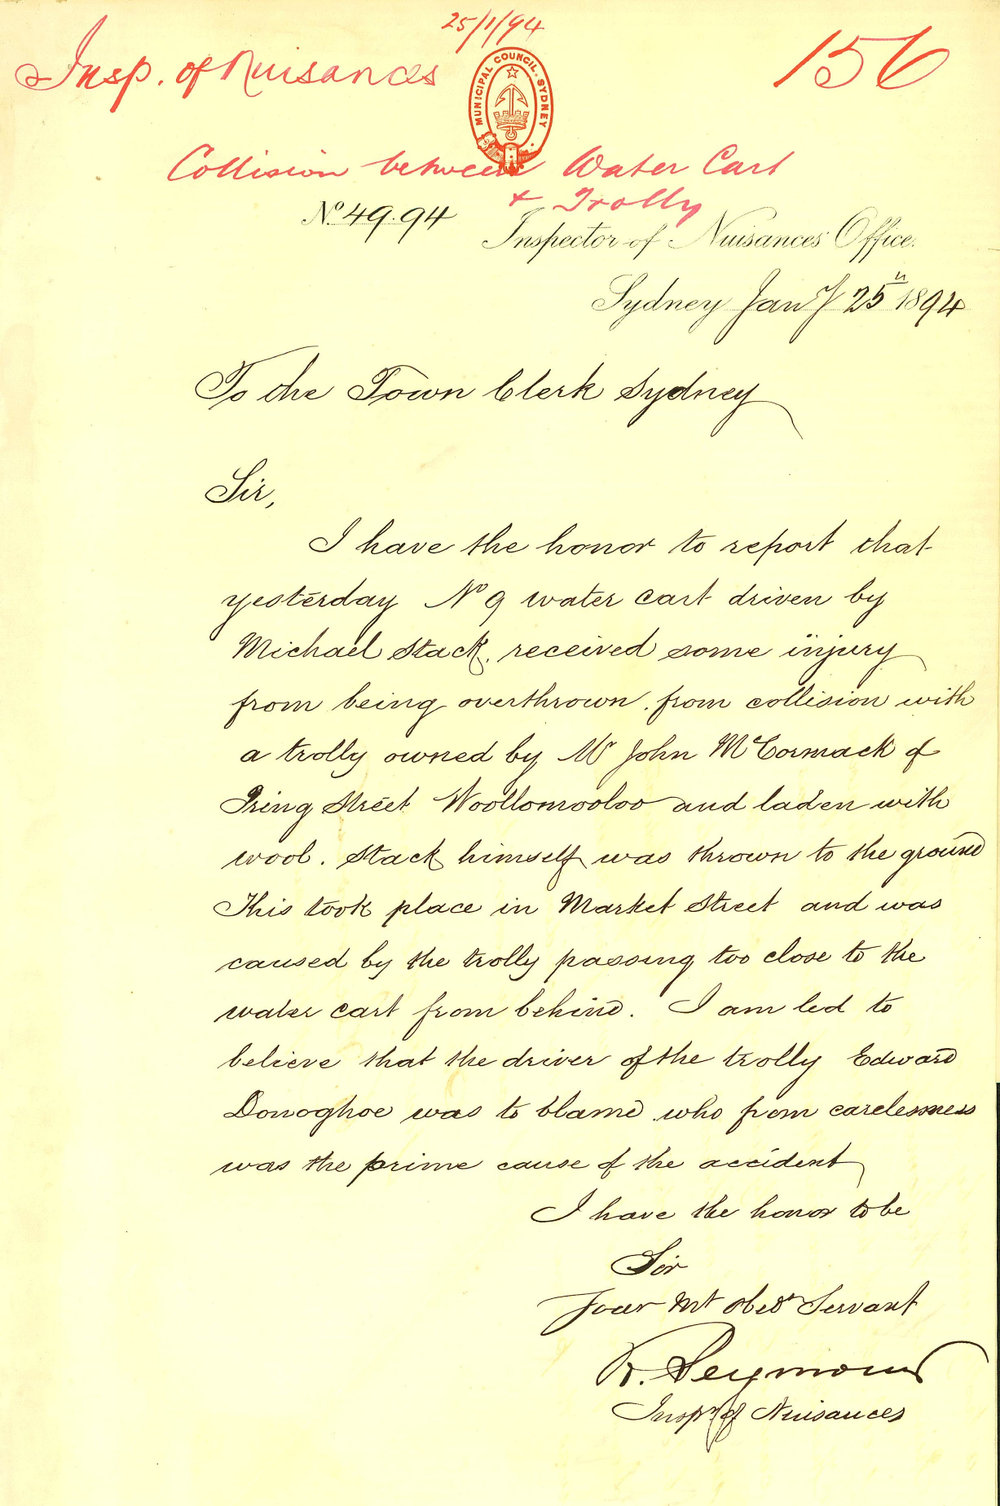 25/1/94
Insp. of Nuisances
156
MUNICIPAL COUNCIL · SYDNEY
Collision between Water Cart
+ Trolly
No. 49.94
Inspector of Nuisances Office.
Sydney Jany 25th 1894
To the Town Clerk Sydney
Sir,
I have the honor to report that
yesterday No 9 water cart driven by
Michael Stack, received some injury
from being overthrown, from collision with
a trolly owned by Mr John McCormack of
Pring Street Woollomooloo and laden with
wool. Stack himself was thrown to the ground
This took place in Market Street and was
caused by the trolly passing too close to the
water cart from behind. I am led to
believe that the driver of the trolly Edward
Donoghoe was to blame who from carelessness
was the prime cause of the accident
I have the honor to be
Sir
Your Mt Obedt Servant
R. Seymour
Inspr of Nuisances